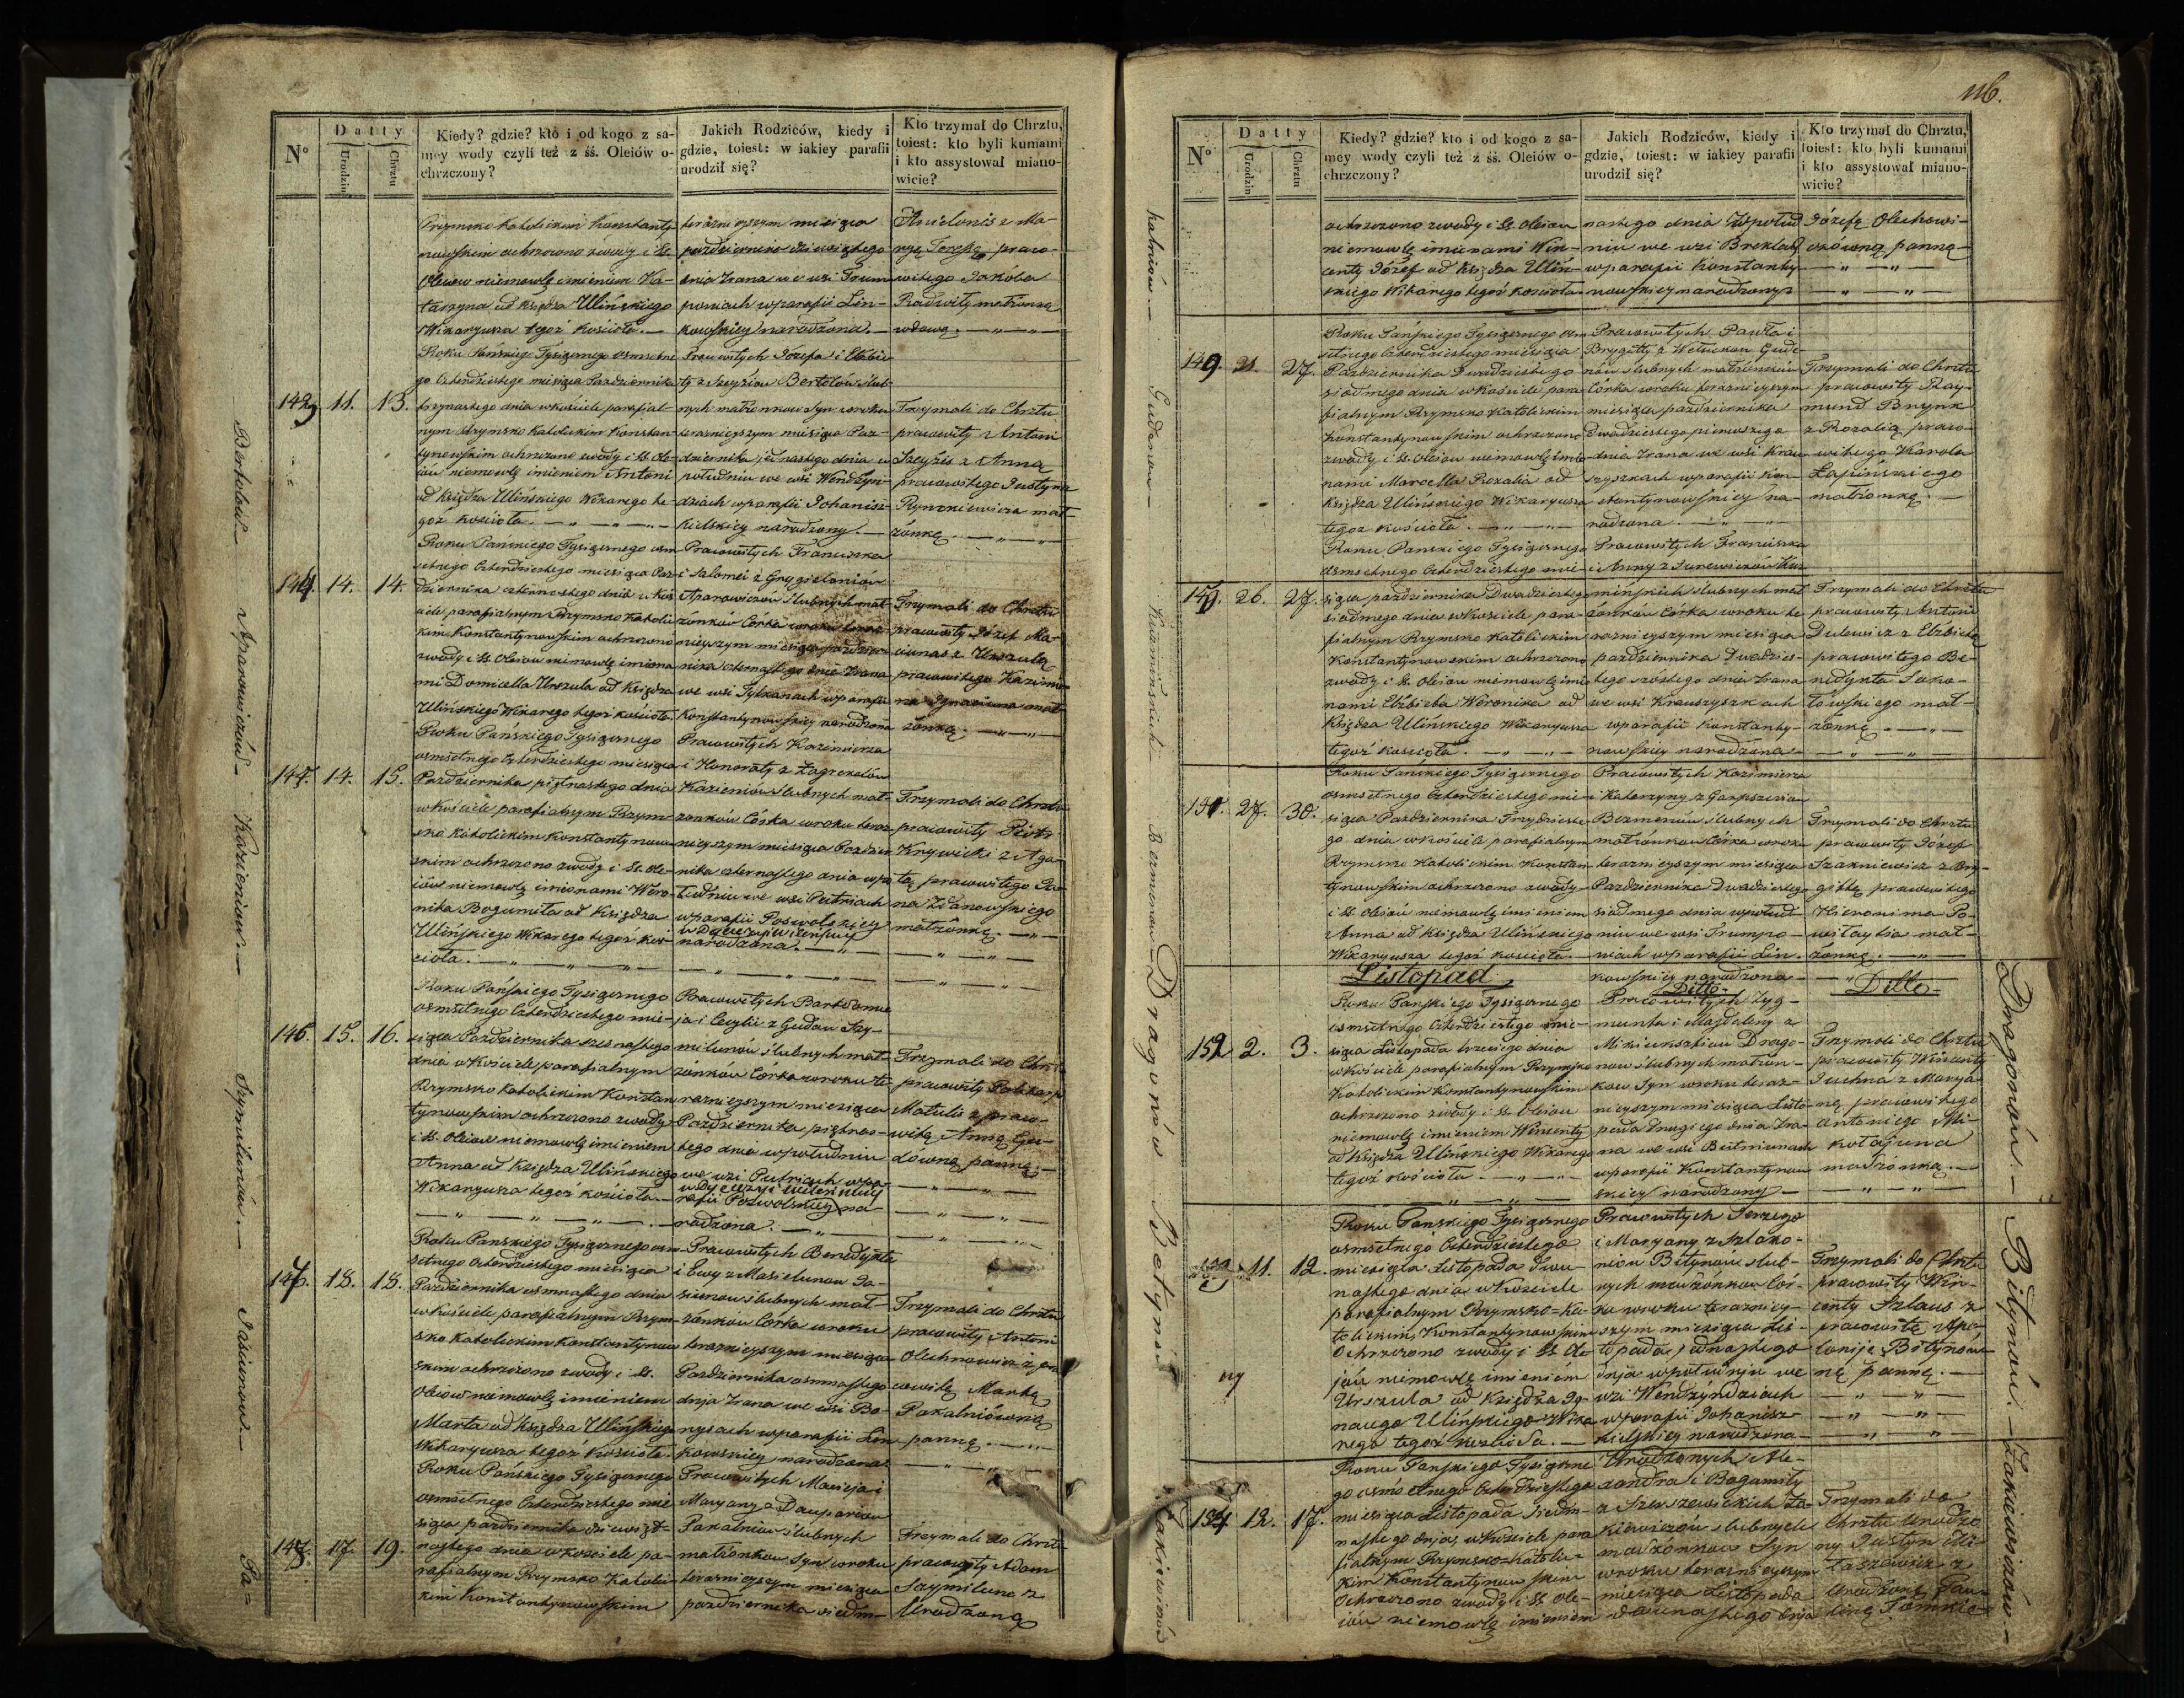 N°
Datty
Urodzin
Chrztu
Kiedy? gdzie? kto i od kogo z sa-
mey wody czyli też z śś. Oleiów o-
chrzczony?
Jakich Rodziców, kiedy i
gdzie, toiest: w iakiey parafii
urodził się?
Kto trzymał do Chrztu,
toiest: kto byli kumami
i kto assystował miano-
wicie?
Rzymsko Katolickim Konstanty-
nowskim ochrzczono zwody i SS.
Oleiow niemowlę imieniem Ka-
tarzyna od księdza Ulińskiego
Wikaryusza tegoż kościoła. —
teraznieyszym miesiąca
pazdziernika dziewiątego
dnia zrana we wsi Trum-
poniach wparafii Lin-
kowskiey narodzona. —
witego Jakóba
wdową. — „ —
Bertolów. —
Roku Pańskiego Tysiącznego osmsetne-
go Czterdziestego miesiąca Pazdziernika
143 11. 13. trzynastego dnia wkościele parafial-
nym Rzymsko Katolickim Konstan-
tynowskim ochrzczono zwody i SS. Ole-
iów niemowlę imieniem Antoni
od księdza Ulińskiego Wikarego te-
goż kościoła. — „ — „ —
Pracowitych Józefa i Elżbie-
ty z Szeyżiow Bertolów ślub-
nych małżonkow Syn wroku
teraznieyszym miesiąca Paz-
dziernika jedenastego dnia w
południu we wsi Wendzyn-
dziach wparafii Johanisz-
kielskiey narodzony. —
Trzymali do Chrztu
pracowity Antoni
Szeyżis z Anną
pracowitego Justyna
Rynkiewicza mał-
żonką. — „ —
Aparowiczów —
Roku Pańskiego Tysiącznego osm-
setnego Czterdziestego miesiąca Paz-
144. 14. 14. dziernika czternastego dnia w koś-
ciele parafialnym Rzymsko Katolic-
kim Konstantynowskim ochrzczono
zwody i SS. Oleiow niemowlę imiona-
mi Domicella Urszula od księdza
Ulińskiego Wikarego tegoż kościoła.
Pracowitych Franciszka
i Salomei z Grygieloniów
Aparowiczów ślubnych mał-
żonków Córka wroku teraz-
nieyszym miesiąca pazdzier-
nika czternastego dnia zrana
we wsi Tylkanach wparafii
Konstantynowskiey narodzona
Trzymali do Chrztu
pracowity Józef Ma-
ciunas z Urszulą
pracowitego Kazimie-
ra Ignaciuna mał-
żonką. — „ —
Kazieniów. —
Roku Pańskiego Tysiącznego
osmsetnego Czterdziestego miesiąca
145. 14. 15. Pazdziernika piętnastego dnia
wkościele parafialnym Rzym-
sko Katolickim Konstantynow-
skim ochrzczono zwody i SS. Ole-
iów niemowlę imionami Wero-
nika Bogumiła od księdza
Ulińskiego Wikarego tegoż koś-
cioła. — „ — „ —
Pracowitych Kazimierza
i Honoraty z Zagrekałów
Kazieniów ślubnych mał-
żonków Córka wroku teraz-
nieyszym miesiąca Pazdzier-
nika czternastego dnia wpo-
łudniu we wsi Putriach
wparafii Poswolskiey
narodzona. — „ —
Trzymali do Chrztu
pracowity Piotr
Krywicki z Aga-
tą pracowitego Ja-
na Zdanowskiego
małżonką. — „ —
Szymilunów. —
Roku Pańskiego Tysiącznego
osmsetnego Czterdziestego mie-
146. 15. 16. siąca Pazdziernika szesnastego
dnia wkościele parafialnym
Rzymsko Katolickim Konstan-
tynowskim ochrzczono zwody
i SS. Oleiow niemowlę imieniem
Anna od księdza Ulińskiego
Wikaryusza tegoż kościoła. —
Pracowitych Bartłomie-
ja i Cecylii z Gudow Szy-
milunów ślubnych mał-
żonków Córka wroku te-
raznieyszym miesiąca
Pazdziernika piętnas-
tego dnia wpołudniu
we wsi Putriach wpa-
rafii Poswolskiey na-
rodzona. — „
Trzymali do Chrz-
tu pracowity Polikarp
Matulis z praco-
witą Anną Gu-
dówną panną. —
Jasiunow. —
Roku Pańskiego Tysiącznego osm-
setnego Czterdziestego miesiąca
147. 18. 18. Pazdziernika osmnastego dnia
wkościele parafialnym Rzym-
sko Katolickim Konstantynow-
skim ochrzczono zwody i SS.
Oleiow niemowlę imieniem
Marta od księdza Ulińskiego
Wikaryusza tegoż kościoła.
Pracowitych Benedykta
i Ewy z Masiulunow Ja-
siunow ślubnych mał-
żonków Córka wroku
teraznieyszym miesiąca
Pazdziernika osmnastego
dnia zrana we wsi Bo-
nysach wparafii Lin-
kowskiey narodzona
Trzymali do Chrztu
pracowity Antoni
Olechnowicz z pra-
cowitą Martą
Pakalniówną
panną. — „ —
Pa-
Roku Pańskiego Tysiącznego
osmsetnego Czterdziestego mie-
siąca pazdziernika dziewięt-
148. 17. 19. nastego dnia wkościele pa-
rafialnym Rzymsko Katolic-
kim Konstantynowskim
Pracowitych Macieja i
Maryany z Dauparów
Pakalniow ślubnych
małżonkow Syn wroku
teraznieyszym miesiąca
pazdziernika siedm-
Trzymali do Chrz-
tu pracowity Adam
Szymilunc z
Urodzoną
116.
N°
Datty
Urodzin
Chrztu
Kiedy? gdzie? kto i od kogo z sa-
mey wody czyli też z śś. Oleiów o-
chrzczony?
Jakich Rodziców, kiedy i
gdzie, toiest: w iakiey parafii
urodził się?
Kto trzymał do Chrztu,
toiest: kto byli kumami
i kto assystował miano-
wicie?
kalniów. —
ochrzczono zwody i SS. Oleiow
niemowlę imionami Win-
centy Józef od księdza Uliń-
skiego Wikarego tegoż kościoła
nastego dnia wpołud-
niu we wsi Breklach
wparafii Konstanty-
nowskiey narodzony
Józefą Olechowi-
czówną panną
— „ — „ —
Gudonow
Roku Pańskiego Tysiącznego osm-
setnego Czterdziestego miesiąca
149. 21. 27. Pazdziernika Dwudziestego
siodmego dnia wkościele para-
fialnym Rzymsko Katolickim
Konstantynowskim ochrzczono
zwody i SS. Oleiow niemowlę imio-
nami Marcella Rozalia od
księdza Ulińskiego Wikaryusza
tegoż kościoła. — „ — „ —
Pracowitych Pawła i
Brygitty z Wełuckow Gudo-
nów ślubnych małżonków
Córka wroku teraznieyszym
miesiąca pazdziernika
Dwudziestego pierwszego
dnia zrana we wsi Krau-
szyszkach wparafii Kon-
stantynowskiey na-
rodzona. — „ —
Trzymali do Chrztu
pracowity Ray-
mund Brynk
z Rozalią praco-
witego Karola
Łapińskiego
małżonką. —
Kaminskich
Roku Panskiego Tysiącznego
osmsetnego Czterdziestego mie-
150. 26. 27. siąca pazdziernika Dwudziestego
siodmego dnia wkościele para-
fialnym Rzymsko Katolickim
Konstantynowskim ochrzczono
zwody i SS. Oleiow niemowlę imio-
nami Elżbieta Weronika od
księdza Ulińskiego Wikaryusza
tegoż kościoła. — „ — „ —
Pracowitych Franciszka
i Anny z Jurewiczow Ka-
minskich ślubnych mał-
żonków Córka wroku te-
raznieyszym miesiąca
pazdziernika Dwudzies-
tego szóstego dnia zrana
we wsi Krauszyszkach
wparafii Konstanty-
nowskiey narodzona —
Trzymali do Chrztu
pracowity Antoni
Dulewicz z Elżbietą
pracowitego Be-
nedykta Soko-
łowskiego mał-
żonką. — „ —
Bozmenow
Roku Pańskiego Tysiącznego
osmsetnego Czterdziestego mie-
151. 27. 30. siąca Pazdziernika Trzydzieste-
go dnia wkościele parafialnym
Rzymsko Katolickim Konstan-
tynowskim ochrzczono zwody
i SS. Oleiow niemowlę imieniem
Anna od księdza Ulińskiego
Wikaryusza tegoż kościoła. —
Pracowitych Kazimierza
i Katarzyny z Garpszewiow
Bozmenów ślubnych
małżonkow Córka wroku
teraznieyszym miesiąca
Pazdziernika Dwudziestego
siodmego dnia wpołud-
niu we wsi Trumpo-
niach wparafii Lin-
kowskiey narodzona —
Trzymali do Chrztu
pracowity Józef
Szarniewicz z Bry-
gittą pracowitego
Hieronima Po-
witaytia mał-
żonką. — „ —
Listopad
Ditto-
Ditto-
Dragonów
Dragonów. —
Roku Pańskiego Tysiącznego
osmsetnego Czterdziestego mie-
152 2. 3. siąca Listopada trzeciego dnia
wkościele parafialnym Rzymsko
Katolickim Konstantynowskim
ochrzczono zwody i SS. Oleiow
niemowlę imieniem Wincenty
od księdza Ulińskiego Wikarego
tegoż kościoła. — „ — „ —
Pracowitych Zyg-
munta i Magdaleny z
Mikienasziow Drago-
now ślubnych małżon-
kow Syn wroku teraz-
nieyszym miesiąca Listo-
pada drugiego dnia zra-
na we wsi Butniunach
wparafii Konstantynow-
skiey narodzony —
Trzymali do Chrztu
pracowity Wincenty
Juchna z Marya-
ną pracowitego
Antoniego Mi-
kołajuna
małżonką. —
Botynów
Bitynów. —
Roku Panskiego Tysiącznego
osmsetnego Czterdziestego
153 11. 12. miesiąca Listopada Dwu-
nastego dnia w Kosciele
parafialnym Rzymsko=Ka-
tolickim, Konstantynowskim
Ochrzczono zwody i SS Ole-
jów niemowlę imieniem
Urszula od Księdza Ig-
nacego Ulińskiego Wika-
rego tegoż kościoła. —
Pracowitych Jerzego
i Maryany z Szlako-
niow Bitynów ślub-
nych małżonkow Cór-
ka wroku terazniey-
szym miesiąca Lis-
topada jednastego
dnia wpołudniu we
wsi Wendzyndziach
wparafii Johanisz-
kielskiey narodzona
Trzymali do Chrztu
pracowity Win-
centy Szlaus z
pracowitą Apo-
lonija Bitynow-
ną panną. —
Zakiewiczów
Zakiewiczów —
Roku Panskiego Tysiączne-
go osmsetnego Czterdziestego
154 12. 17. miesiąca Listopada Siedm-
nastego dnia, w Kościele para-
fialnym Rzymsko=Katolic-
kim Konstantynowskim
Ochrzczono zwody i SS Ole-
jów niemowlę imieniem
Urodzonych Ale-
xandra i Bogumiły
z Szerszewickich Za-
kiewiczów ślubnych
małżonkow Syn
wroku teraznieyszym
miesiąca Listopada
dwunastego dnja
Trzymali do
Chrztu Urodzo-
ny Justyn Mi-
łaszewicz z
Urodzoną Pau-
liną Tomkie-